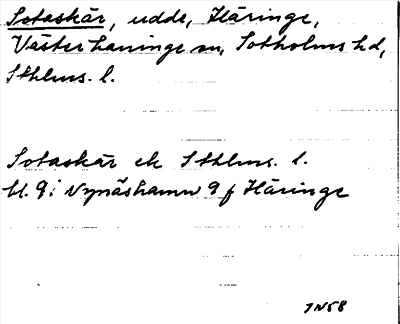 Sotaskär, udde, Häringe,
Västerhaninge sn, Sotholms hd,
Sthlms. l.
Sotaskär ek Sthlms. l.
bl. 9i Nynäshamn 9 f Häringe
7N58